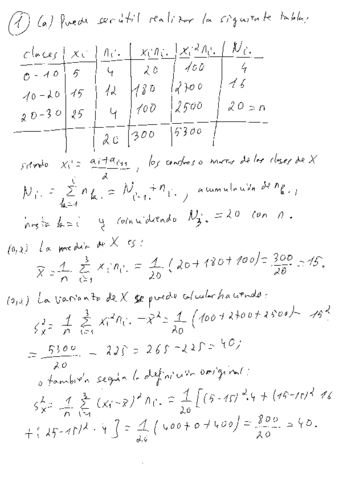 ① (a) Puede ser útil realizar la siguiente tabla.
clases | xi | ni. | xi ni. | xi² ni. | Ni.
0-10 | 5 | 4 | 20 | 100 | 4
10-20 | 15 | 12 | 180 | 2700 | 16
20-30 | 25 | 4 | 100 | 2500 | 20 = n
20 | 300 | 5300
siendo xi = (ai + ai+1)/2, los centros o marcas de las clases de X
Ni. = Σ nk. = Ni-1. + ni., acumulación de nk.,
hasta k=i y coincidiendo N3. = 20 con n.
(0,2) La media de X es:
x̄ = 1/n Σ xi ni. = 1/20 (20 + 180 + 100) = 300/20 = 15.
(0,2) La varianza de X se puede calcular haciendo:
Sx² = 1/n Σ xi² ni. - x̄² = 1/20 (100 + 2700 + 2500) - 15²
= 5300/20 - 225 = 265 - 225 = 40;
o también según la definición original:
Sx² = 1/n Σ (xi - x̄)² ni. = 1/20 [(5-15)²·4 + (15-15)² 16
+ (25-15)²·4] = 1/20 (400 + 0 + 400) = 800/20 = 40.